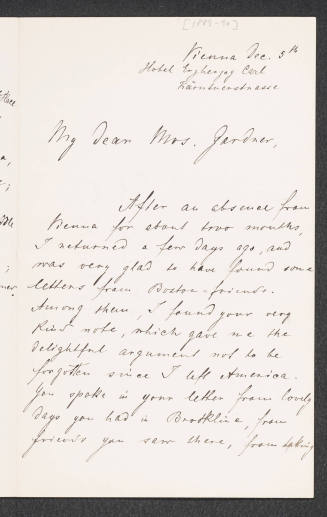 [1889-90]
Vienna Dec. 5th
Hotel Erzherzog Carl
Kärntnerstrasse
My dear Mrs. Gardner,
After an absence from
Vienna for about two months,
I returned a few days ago, and
was very glad to have found some
letters from Boston-friends.
Among them, I found your very
kind note, which gave me the
delightful argument not to be
forgotten since I left America.
You spoke in your letter from lovely
days you had in Brookline, from
friends you saw there, from